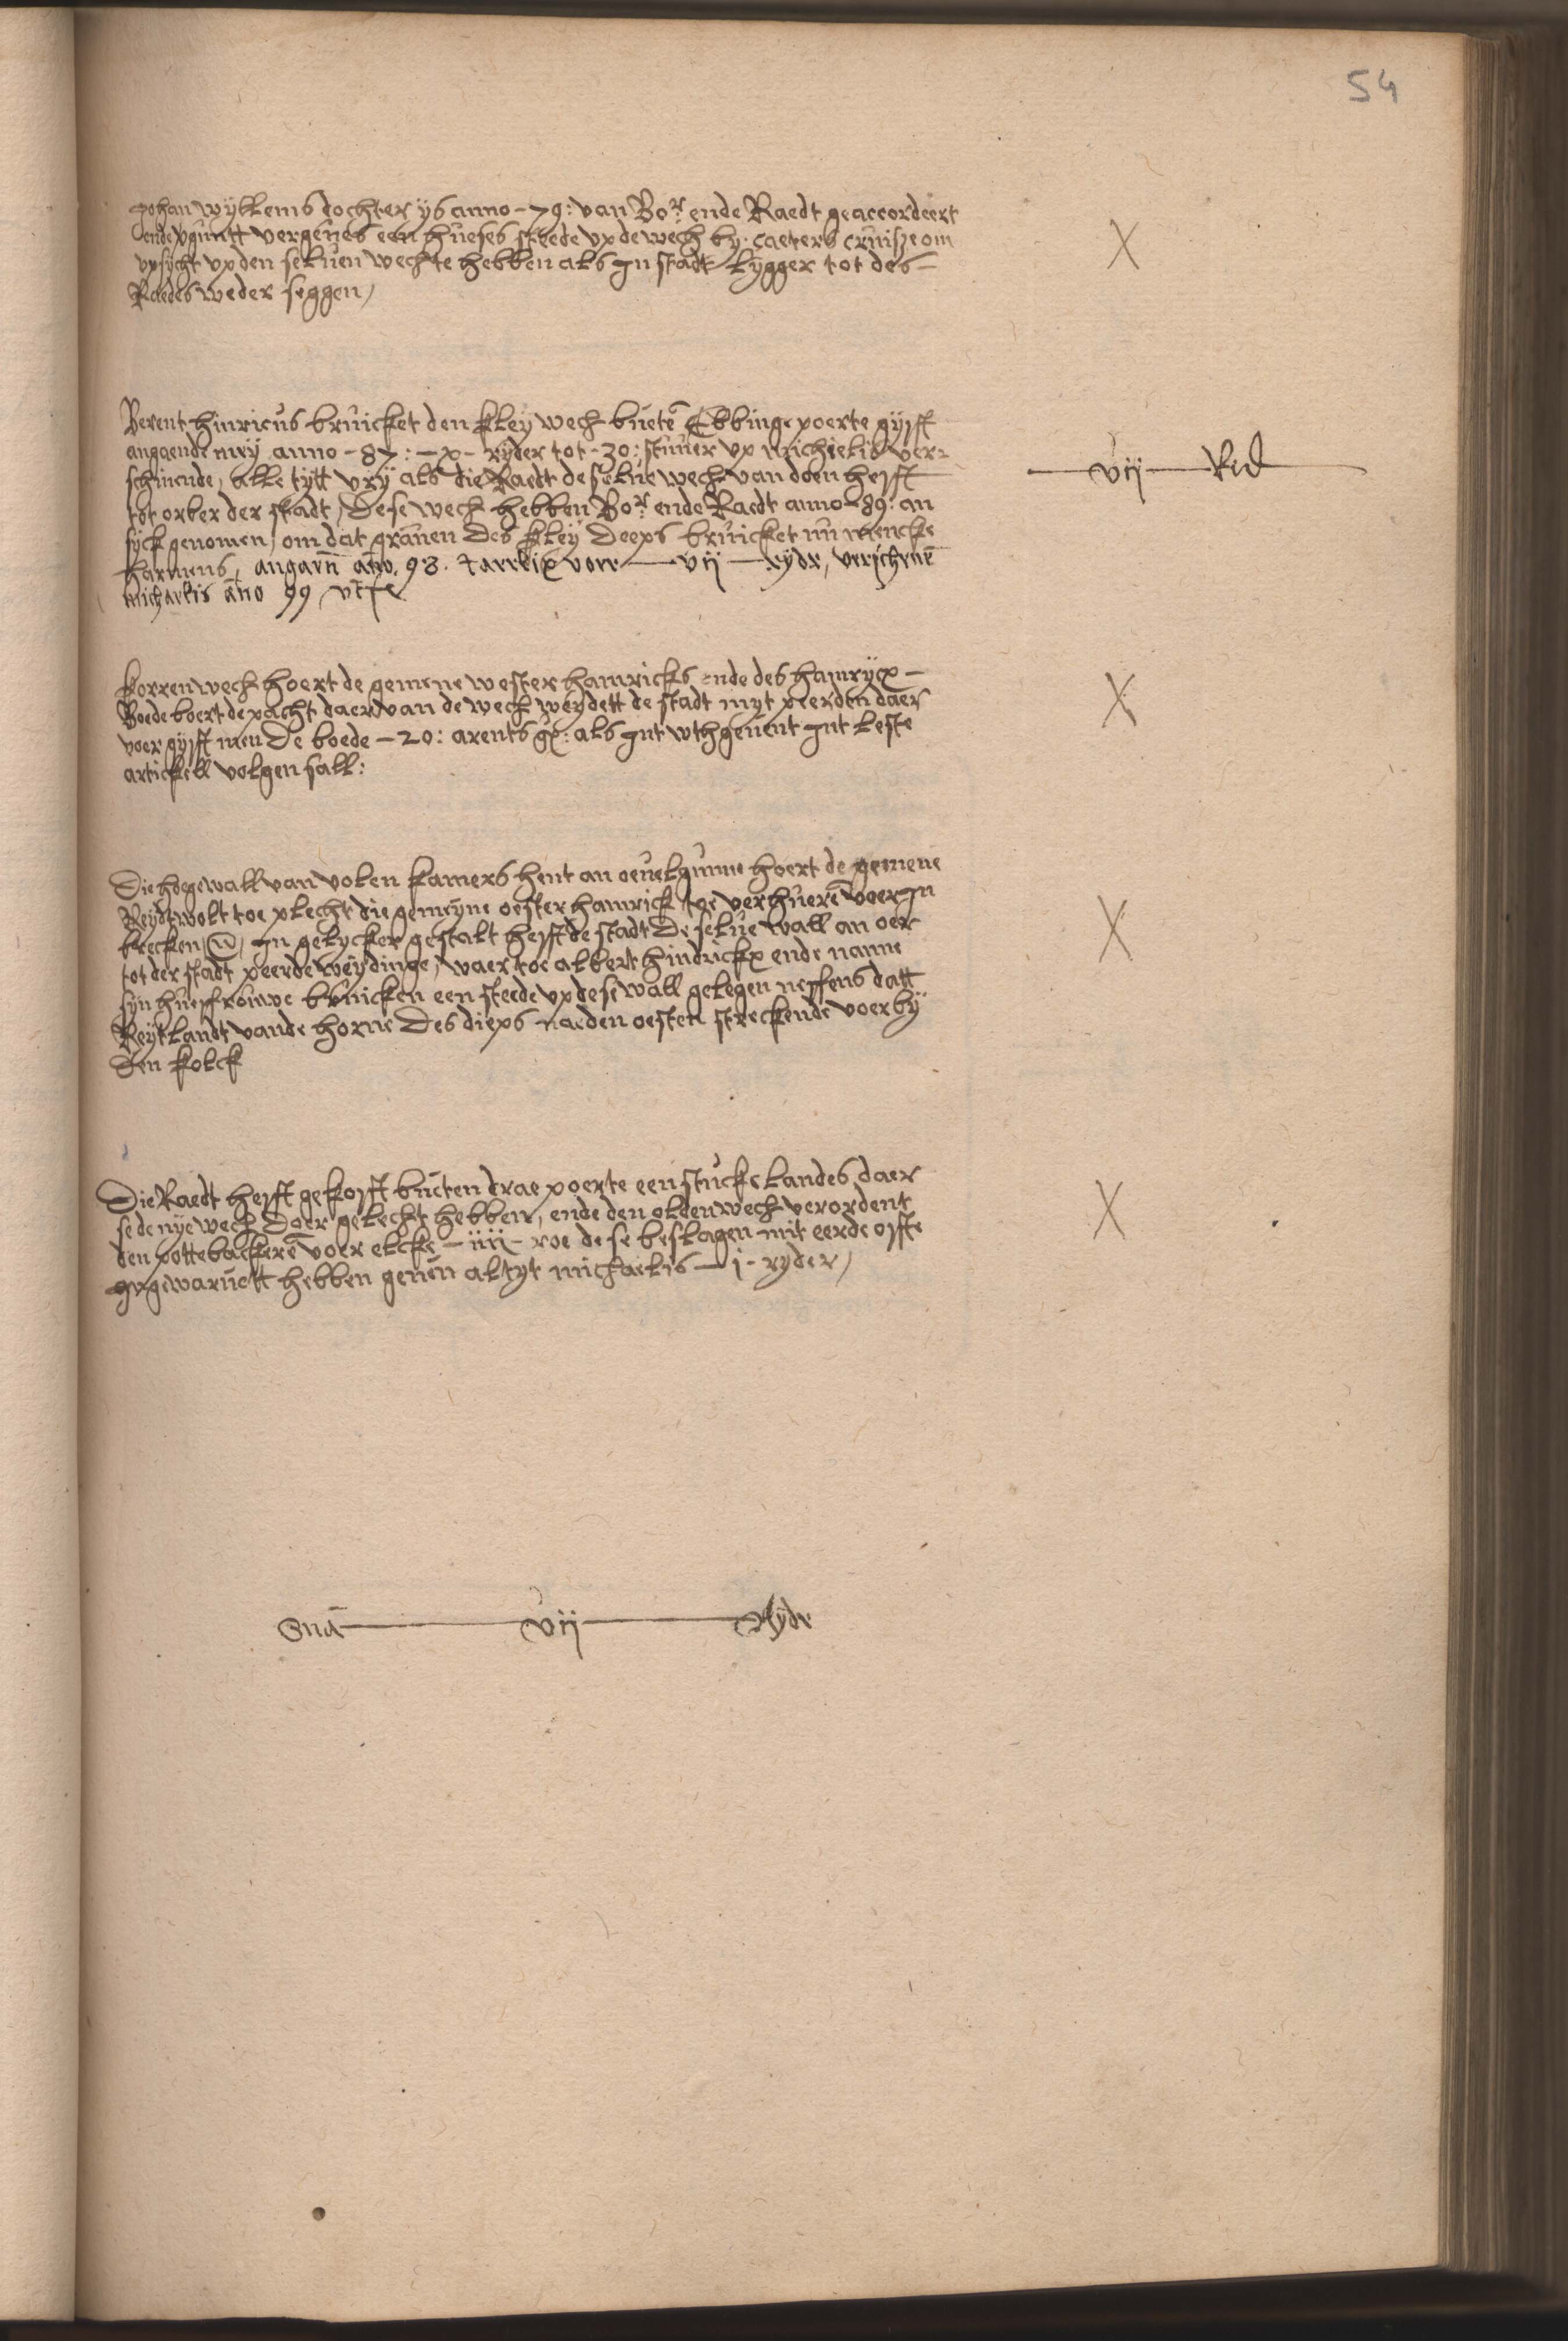 54
Johan Wyllems dochter ys anno - 79: van Bor ende Raedt geaccordeert
ende vgunt vergeues een hueses stede vp de wech by: caeters cruisze om
vpsycht vp den seluen wech te hebben als Jn stadt lygger tot des -
Raedes weder seggen,
Berent hinricus bruicket den kley wech buete Ebbinge poerte gyfft
angaende mey anno - 87: - x - ryder tot - 30: stuuer vp michielis ver=
schinende, alle tytt vry als die Raedt de selue wech van doen hefft
tot orber der stadt, Dese wech hebben Bor ende Raedt anno - 89: an
syck genomen, om dat grauen des kley deeps bruicket nu mencke
harmens, angaen ano. 98. voer — vij — rydr, verschene
michaelis ano 99 vt
— vij — Rid —
Korrenwech hoert de gemene wester hamricks ende des hamryx -
Boede boert de pacht daer van de wech weydett de stadt myt peerden daer
voer gyfft men de boede - 20: arents gl: als Jnt wthgeuent Jnt leste
artickell volgen sall:
Die hoge wall van volen kamers hent an oeuelgunne hoert de gemene
Reydtwolt toe plecht die gemeyne oester hamrick toe verhuere voer Jn
brecken Jn gelycker gestalt hefft de stadt De selue wall an oer
tot der stadt peerde weydinge, waer toe albert hindrickx ende namme
syn huesfrouwe bruicken een stede vp dese wall gelegen neffens datt
Reytlandt vande horne des dieps naeden oesten streckende voer by
den kolck
Die Raedt hefft gekofft bueten drae poerte een stucke landes daer
se de nye wech doer gelecht hebben, ende den olden wech verordent
den pottebackere voer elcke - iiii - roe de se beslagen mit eerde offte
Jngewaruett hebben geuen altyt michaelis - i - ryder,
Sma — vij — Rydr